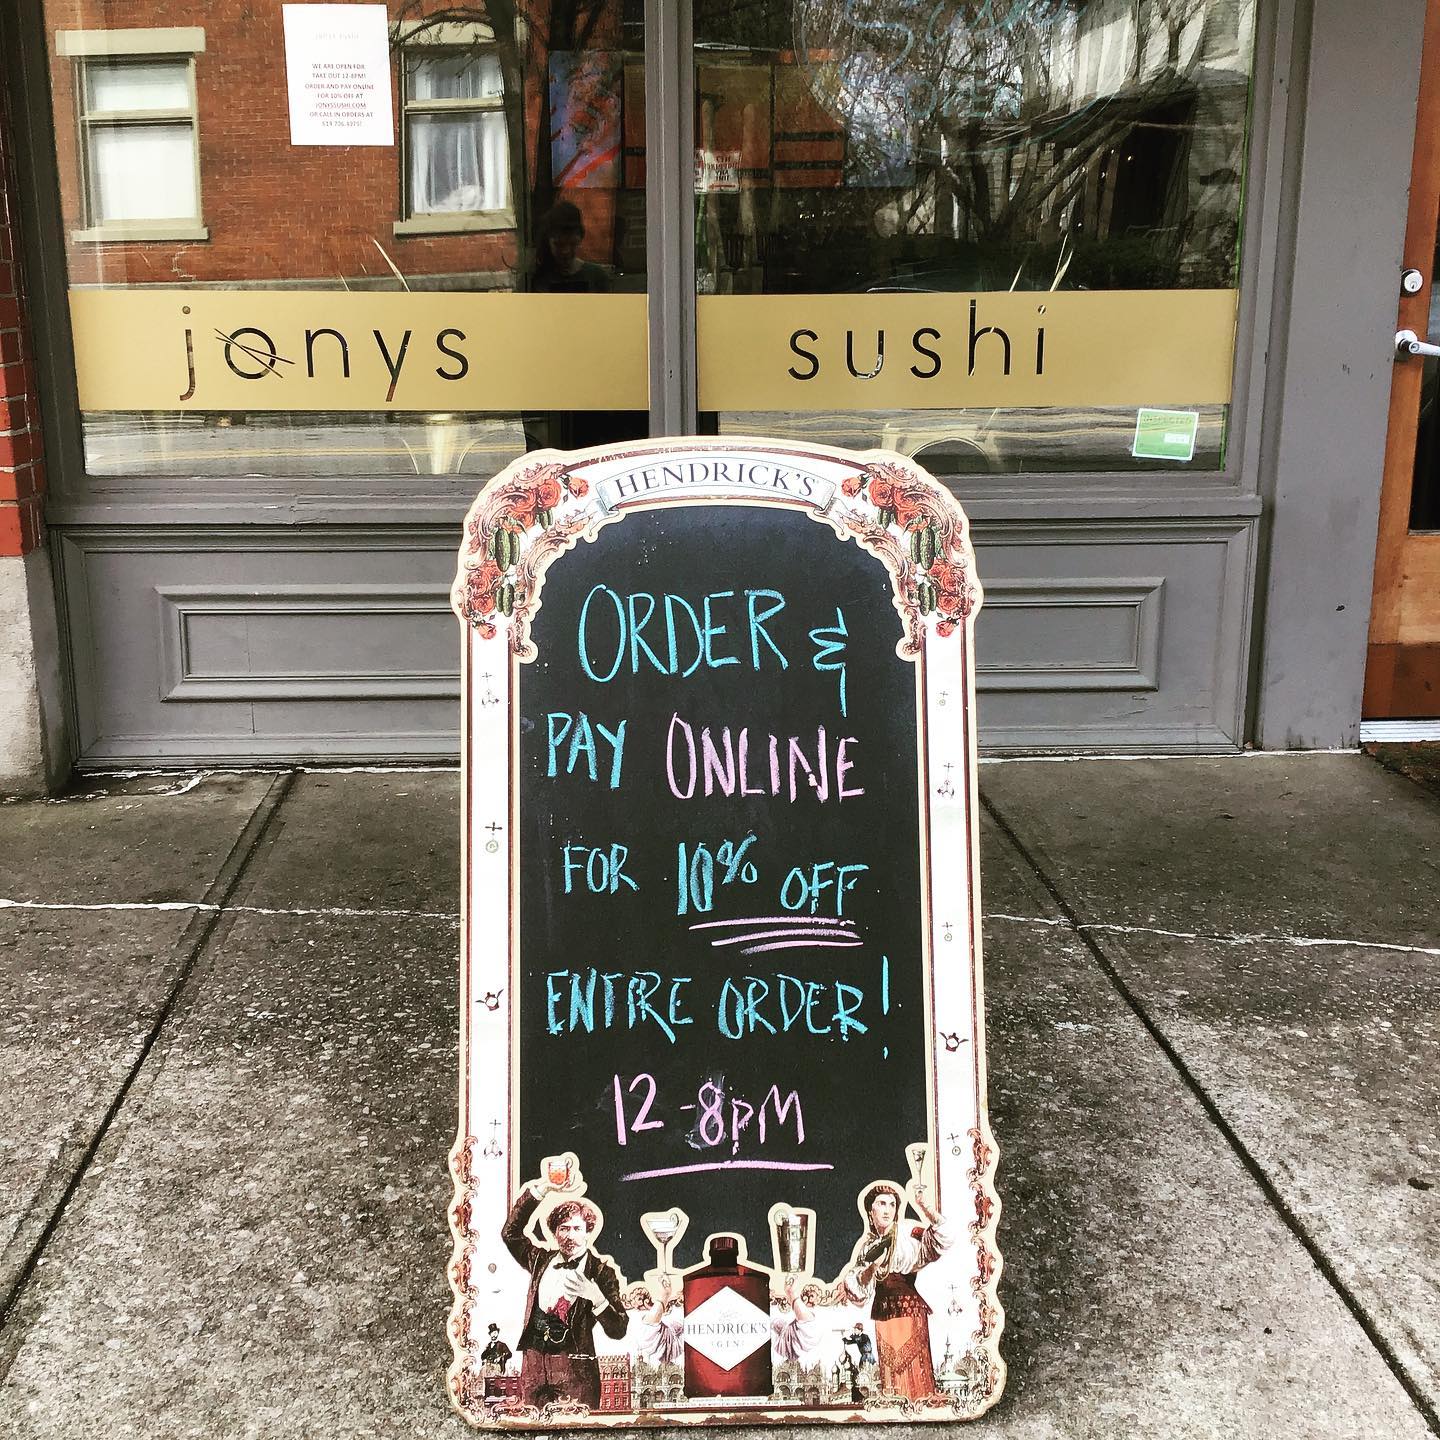 WE ARE OPEN FOR
TAKE OUT 12-8PM!
ORDER AND PAY ONLINE
FOR 10% OFF AT
JONYSSUSHI.COM
OR CALL IN ORDERS AT
jonys sushi
INSPECTED
HENDRICK'S
ORDER &
PAY ONLINE
FOR 10% OFF
ENTIRE ORDER!
12-8PM
HENDRICK'S
GIN